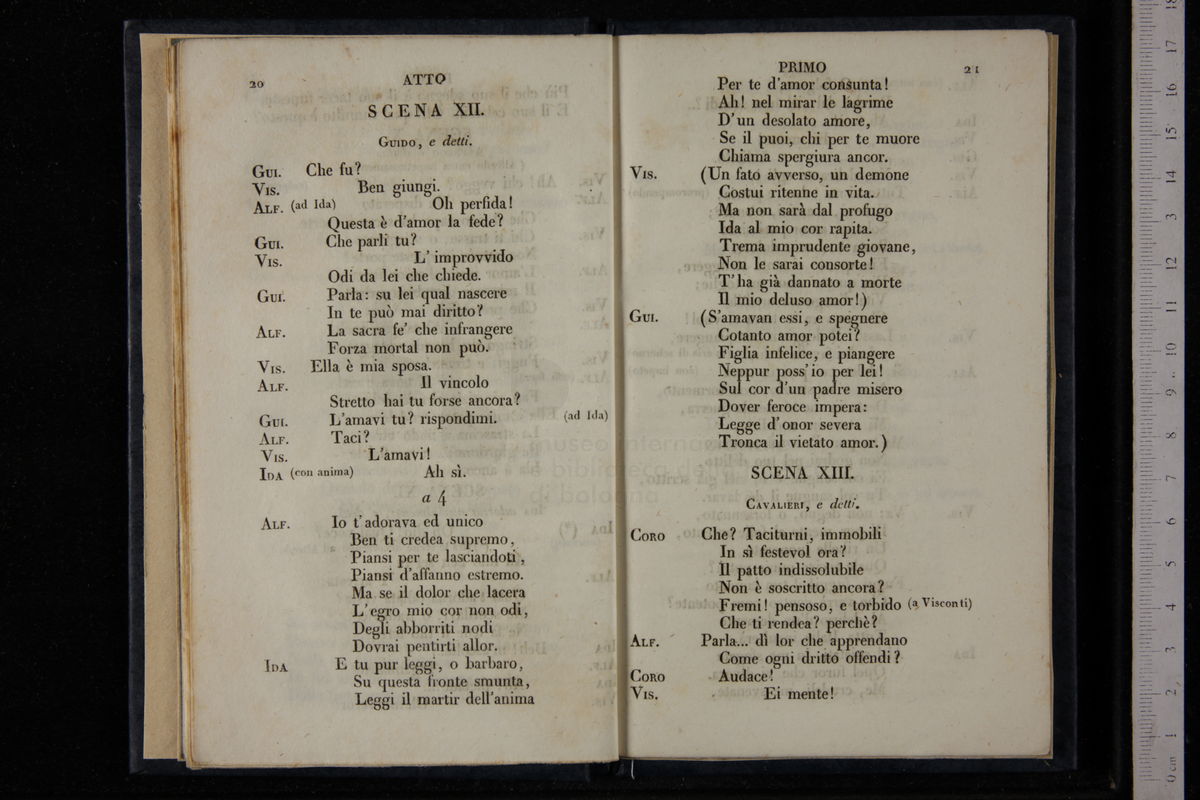 20
ATTO
SCENA XII.
Guido, e detti.
Gui. Che fu?
Vis. Ben giungi.
Alf. (ad Ida) Oh perfida!
Questa è d'amor la fede?
Gui. Che parli tu?
Vis. L' improvviso
Odi da lei che chiede.
Gui. Parla: su lei qual nascere
In te può mai diritto?
Alf. La sacra fe' che infrangere
Forza mortal non può.
Vis. Ella è mia sposa.
Alf. Il vincolo
Stretto hai tu forse ancora?
Gui. L'amavi tu? rispondimi. (ad Ida)
Alf. Taci?
Vis. L'amavi!
Ida (con anima) Ah sì.
a 4
Alf. Io t'adorava ed unico
Ben ti credea supremo,
Piansi per te lasciandoti,
Piansi d'affanno estremo.
Ma se il dolor che lacera
L'egro mio cor non odi,
Degli abborriti nodi
Dovrai pentirti allor.
Ida E tu pur leggi, o barbaro,
Su questa fronte smunta,
Leggi il martir dell'anima
PRIMO
21
Per te d'amor consunta!
Ah! nel mirar le lagrime
D'un desolato amore,
Se il puoi, chi per te muore
Chiama spergiura ancor.
Vis. (Un fato avverso, un demone
Costui ritenne in vita.
Ma non sarà dal profugo
Ida al mio cor rapita.
Trema imprudente giovane,
Non le sarai consorte!
T'ha già dannato a morte
Il mio deluso amor!)
Gui. (S'amavan essi, e spegnere
Cotanto amor potei?
Figlia infelice, e piangere
Neppur poss'io per lei!
Sul cor d'un padre misero
Dover feroce impera:
Legge d'onor severa
Tronca il vietato amor.)
SCENA XIII.
Cavalieri, e detti.
Coro Che? Taciturni, immobili
In sì festevol ora?
Il patto indissolubile
Non è soscritto ancora?
Fremi! pensoso, e torbido (a Visconti)
Che ti rendea? perchè?
Alf. Parla... dì lor che apprendano
Come ogni dritto offendi?
Coro Audace!
Vis. Ei mente!
museo internaz
biblioteca del
di bologna
0 cm 1 2 3 4 5 6 7 8 9 10 11 12 13 14 15 16 17 18